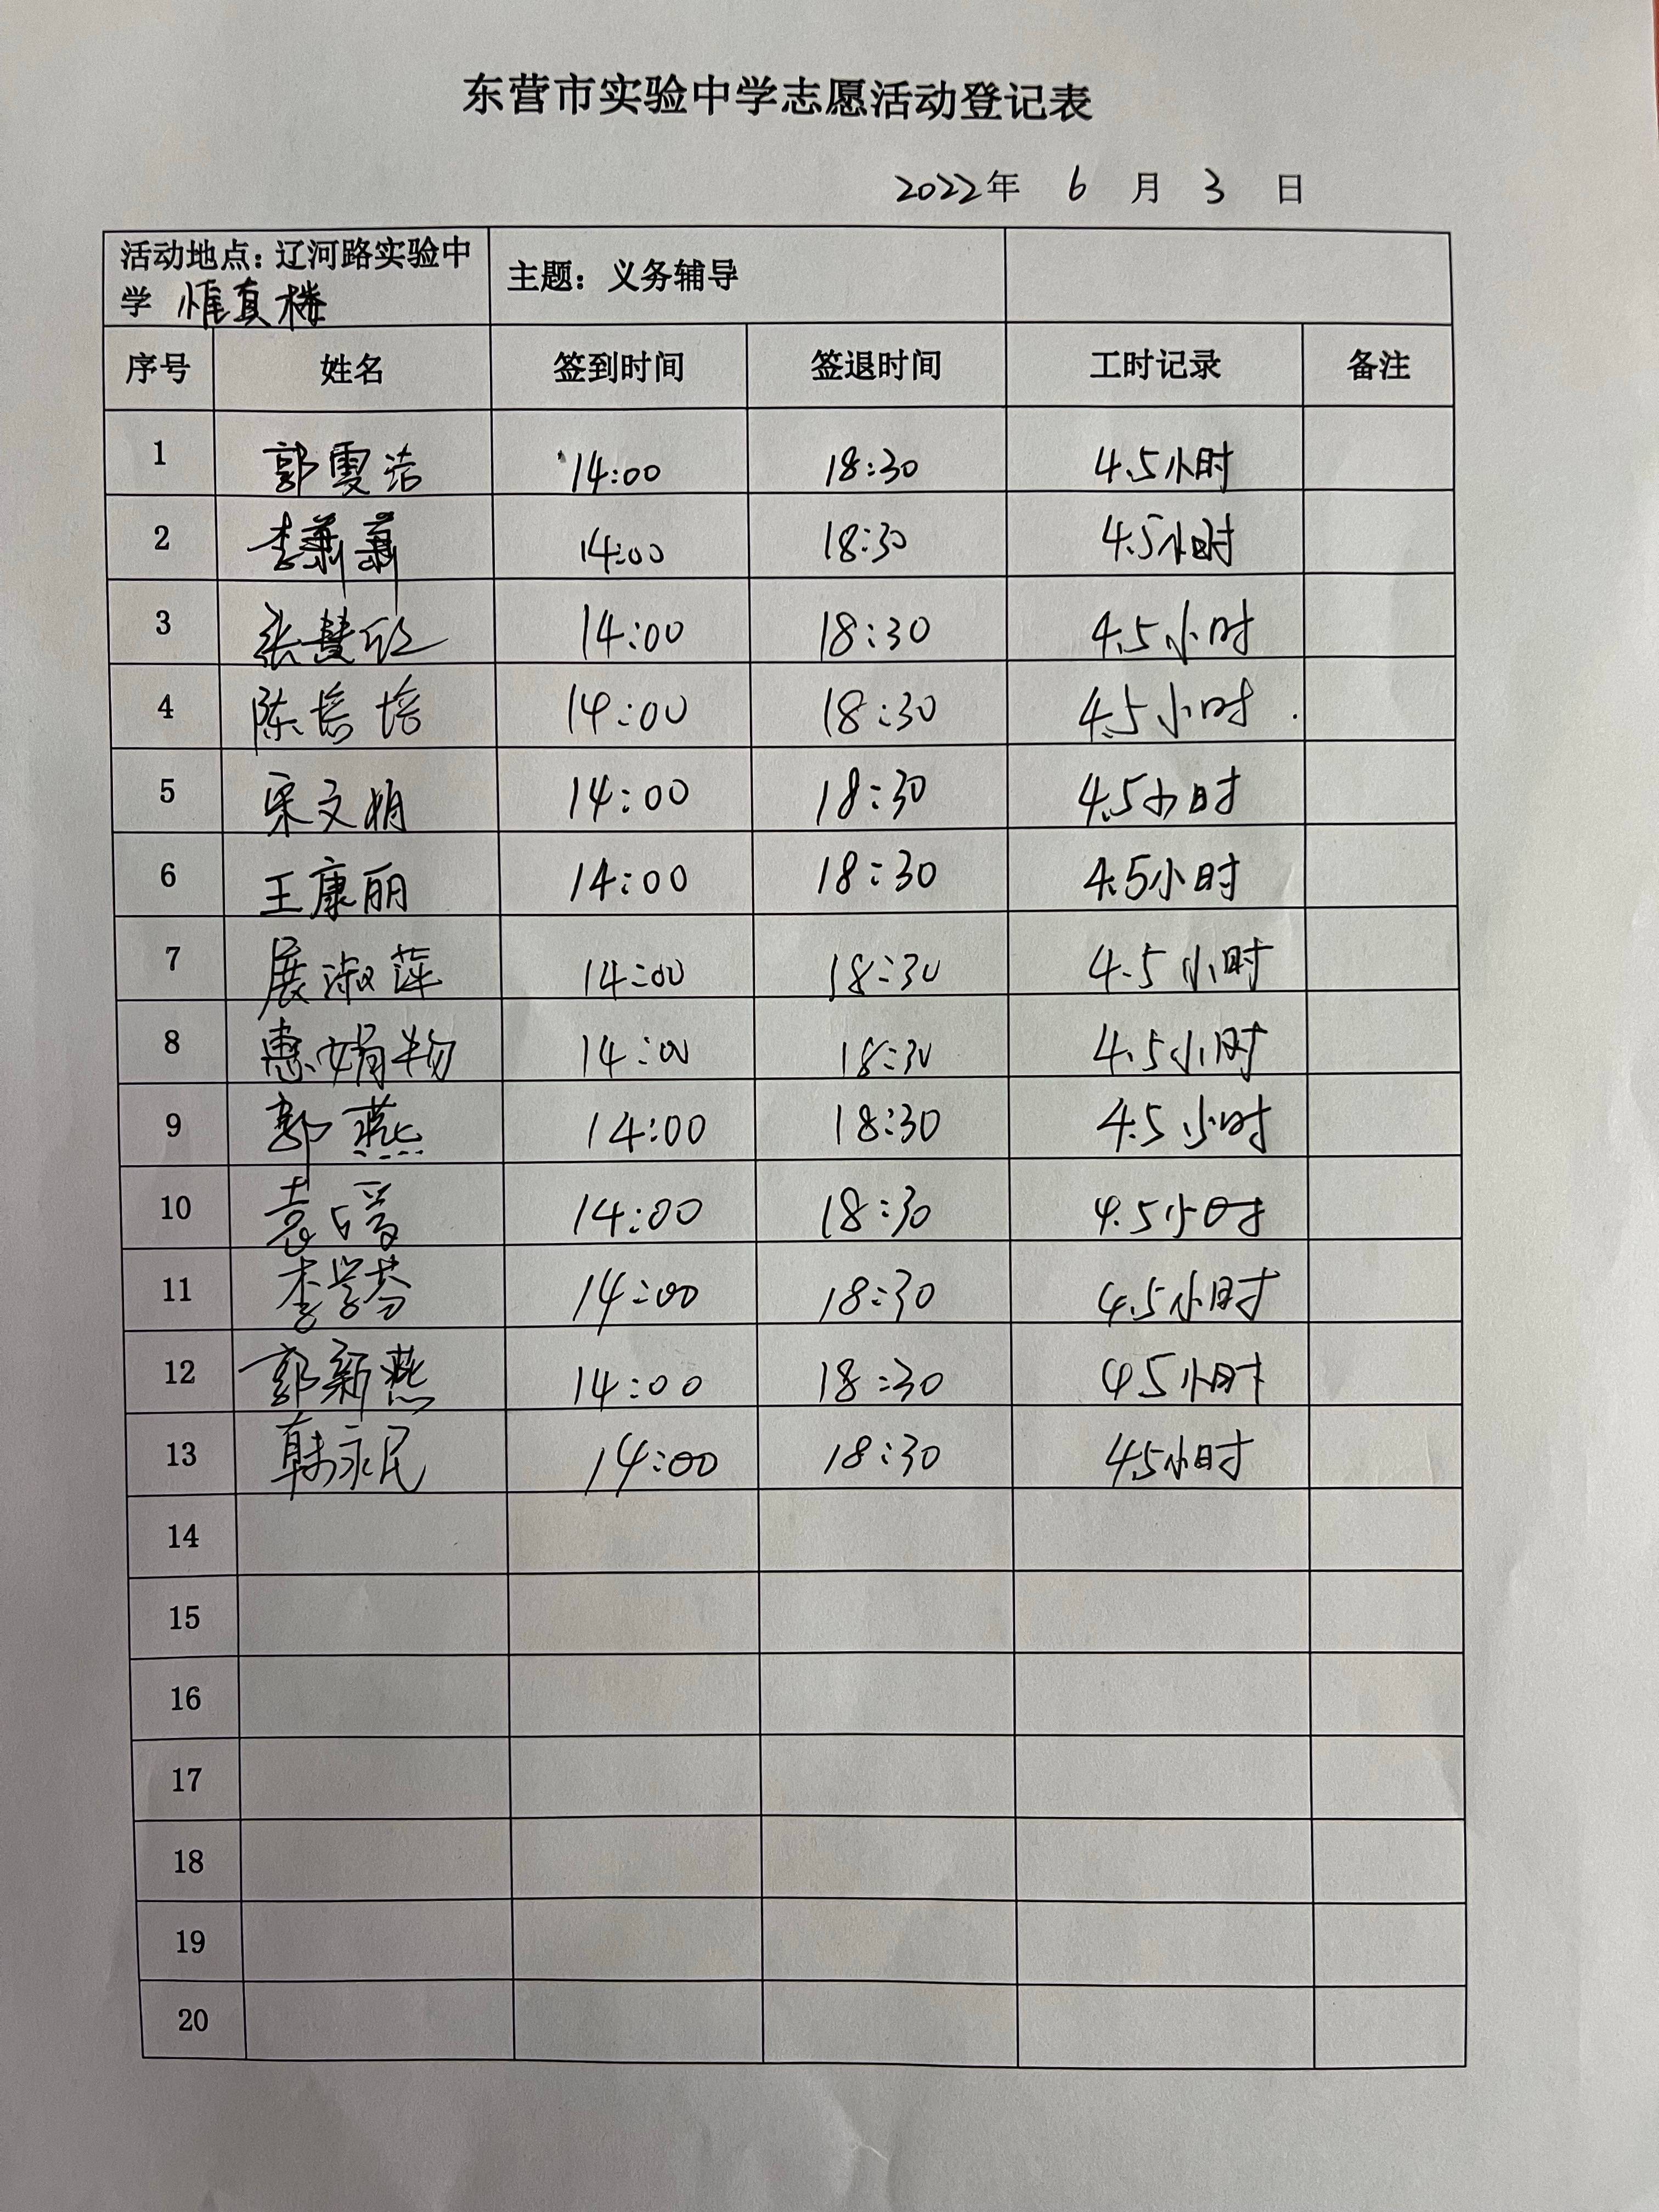 东营市实验中学志愿活动登记表
2022年 6 月 3 日
活动地点：辽河路实验中 主题：义务辅导
学 惟真楼
序号 姓名 签到时间 签退时间 工时记录 备注
1 郭雯洁 14:00 18:30 4.5小时
2 李萧萧 14:00 18:30 4.5小时
3 张慧欣 14:00 18:30 4.5小时
4 陈培培 14:00 18:30 4.5小时.
5 宋文娟 14:00 18:30 4.5小时
6 王康丽 14:00 18:30 4.5小时
7 展淑萍 14:00 18:30 4.5小时
8 14:00 18:30 4.5小时
9 郭燕 14:00 18:30 4.5小时
10 14:00 18:30 4.5小时
11 李学芬 14:00 18:30 4.5小时
12 郭新燕 14:00 18:30 4.5小时
13 韩永民 14:00 18:30 4.5小时
14
15
16
17
18
19
20